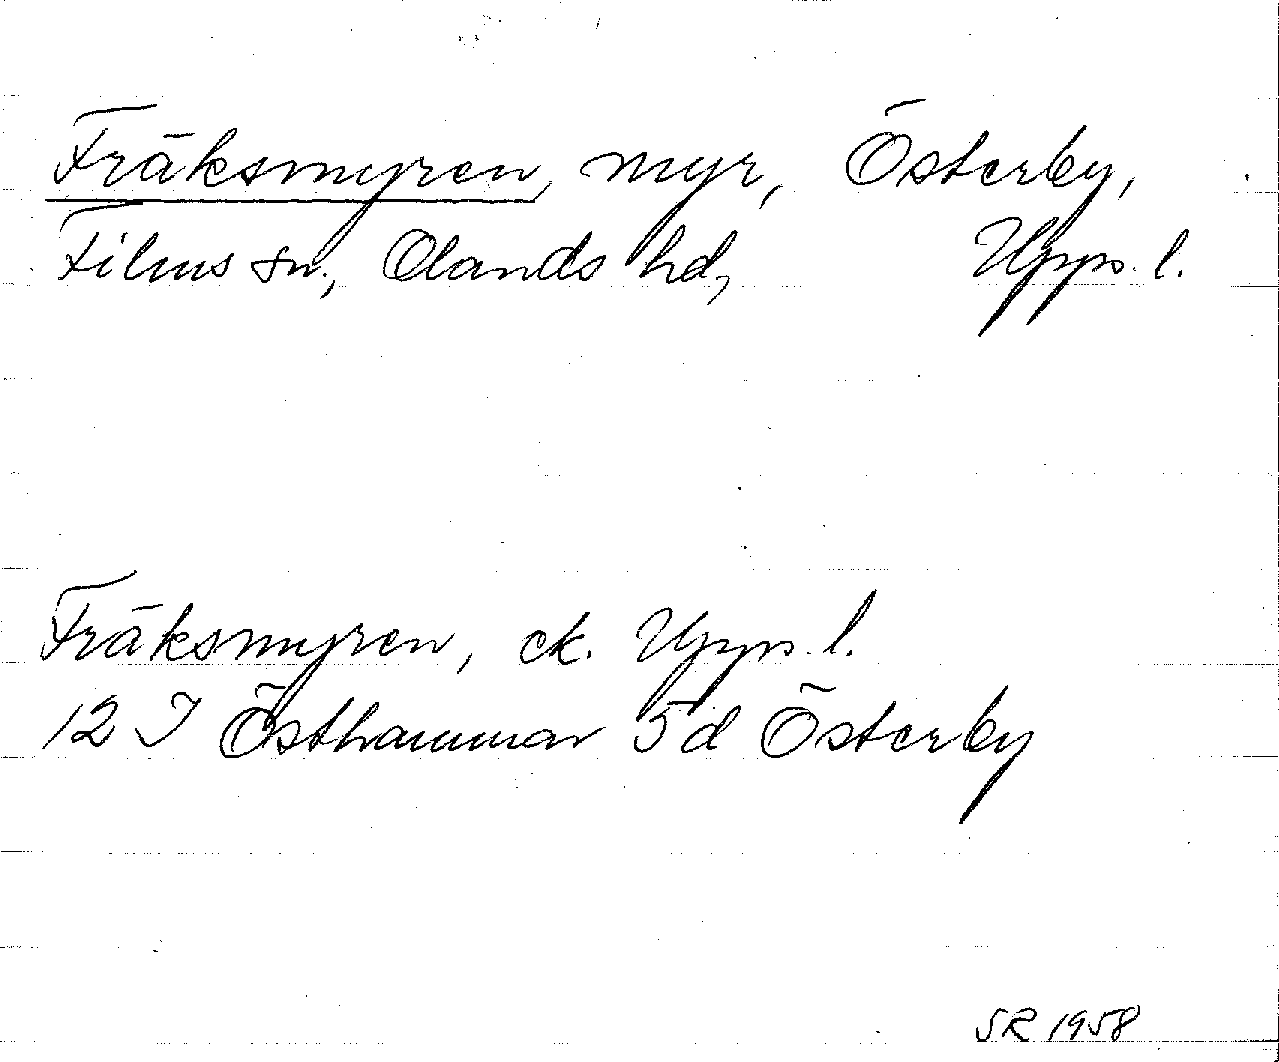 Fräksmyren, myr, Österby,
Films sn, Olands hd, Upps. l.
Fräksmyren, ek. Upps. l.
12 I Östhammar 5d Österby
SR 1958